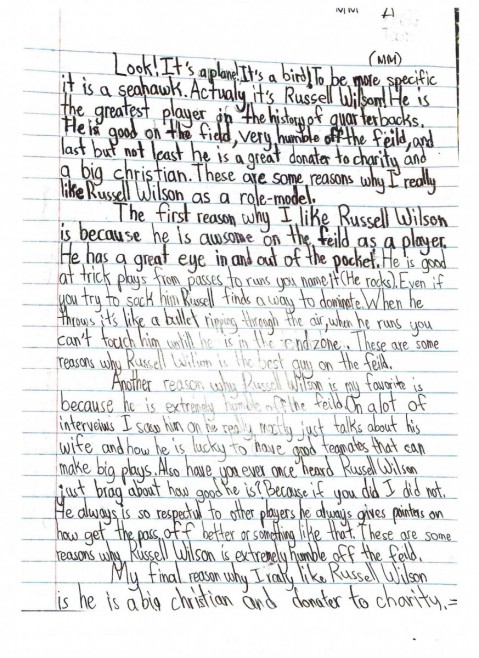 MM
(MM)
Look! It's a plane! It's a bird! To be more specific
it is a seahawk. Actualy it's Russell Wilson! He is
the greatest player in the history of quarterbacks.
He is good on the field, very humble off the feild, and
last but not least he is a great donater to charity and
a big christian. These are some reasons why I really
like Russell Wilson as a role-model.
The first reason why I like Russell Wilson
is because he is awsome on the feild as a player.
He has a great eye in and out of the pocket. He is good
at trick plays from passes to runs you name it (He rocks). Even if
you try to sack him Russell finds a way to dominate. When he
throws it's like a bullet ripping through the air, when he runs you
can't touch him untill he is in the endzone. These are some
reasons why Russell Wilson is the best guy on the feild.
Another reason why Russell Wilson is my favorite is
because he is extremely humble off the feild. On alot of
interveiws I saw him on he really mostly just talks about his
wife and how he is lucky to have good teamates that can
make big plays. Also have you ever once heard Russell Wilson
just brag about how good he is? Because if you did I did not.
He always is so respectul to other players he always gives pointers on
how get the pass off better or something like that. These are some
reasons why Russell Wilson is extremely humble off the feild.
My final reason why I really like Russell Wilson
is he is a big christian and donater to charity.=